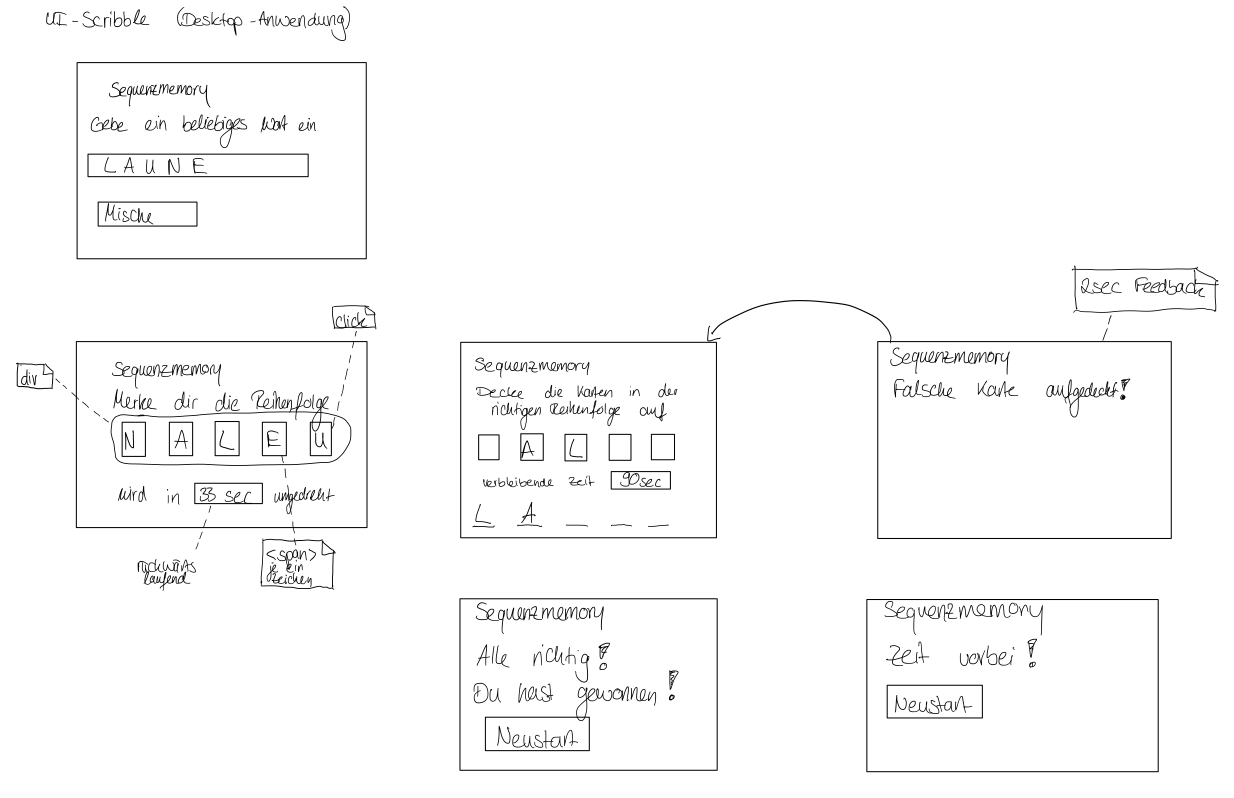 UI-Scribble (Desktop-Anwendung)
Sequenzmemory
Gebe ein beliebiges Wort ein
LAUNE
Mische
click
div
Sequenzmemory
Merke dir die Reihenfolge
N A L E U
wird in 33 sec umgedreht
rückwärts
laufend
<span>
je ein
Zeichen
Sequenzmemory
Decke die Karten in der
richtigen Reihenfolge auf
A L
verbleibende Zeit 90sec
L A _ _ _
2sec Feedback
Sequenzmemory
Falsche Karte aufgedeckt!
Sequenzmemory
Alle richtig!
Du hast gewonnen!
Neustart
Sequenzmemory
Zeit vorbei!
Neustart